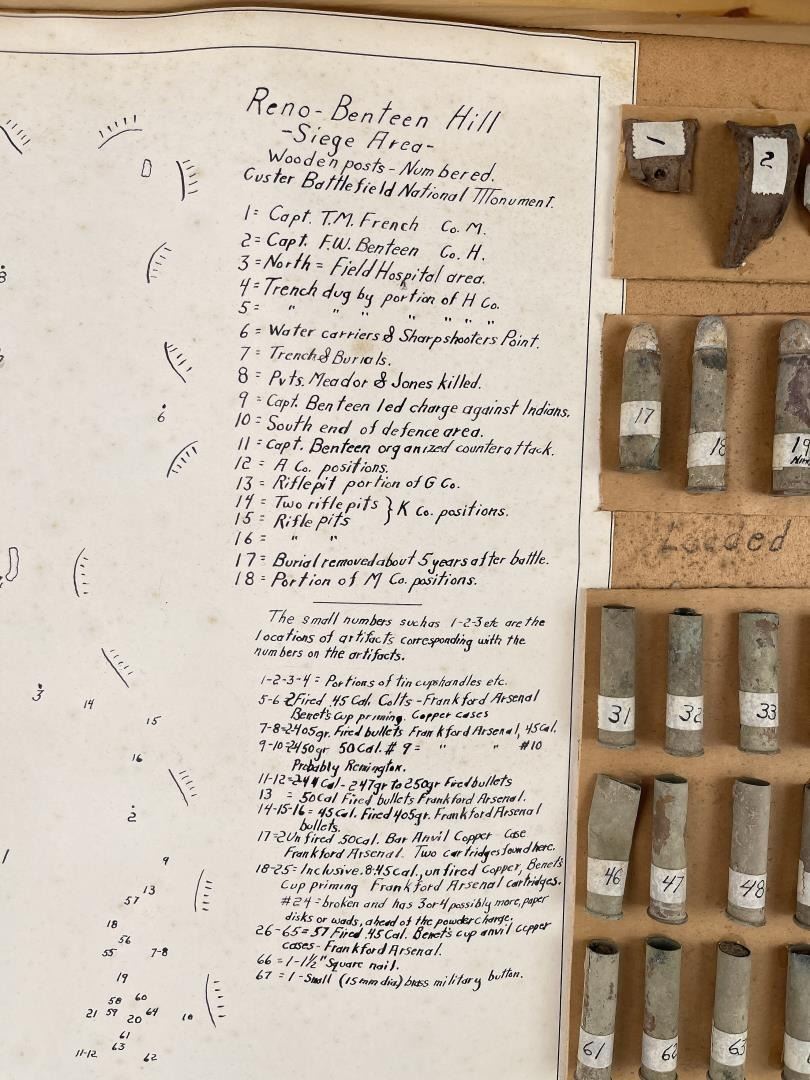 Reno-Benteen Hill
-Siege Area-
Wooden posts-Numbered.
Custer Battlefield National Monument.
1= Capt. T.M. French Co. M.
2= Capt. F.W. Benteen Co. H.
3= North = Field Hospital area.
4= Trench dug by portion of H Co.
5= " " " " " " "
6= Water carriers & Sharpshooters Point.
7= Trench & Burials.
8= Pvts. Meador & Jones killed.
9= Capt. Benteen led charge against Indians.
10= South end of defence area.
11= Capt. Benteen organized counterattack.
12= A Co. positions.
13= Riflepit portion of G Co.
14= Two riflepits } K Co. positions.
15= Rifle pits
16= " "
17= Burial removed about 5 years after battle.
18= Portion of M Co. positions.
The small numbers such as 1-2-3 etc are the
locations of artifacts corresponding with the
numbers on the artifacts.
1-2-3-4= Portions of tin cups handles etc.
5-6=2 Fired .45 Cal. Colts-Frankford Arsenal
Benet's Cup priming. Copper cases
7-8=2-405gr. Fired bullets Frankford Arsenal, 45 Cal.
9-10=2-450gr 50 Cal. #9= " " #10
Probably Remington.
11-12=2-44 Cal-247gr to 250gr Fired bullets
13 = 50 Cal Fired bullets Frankford Arsenal.
14-15-16= 45 Cal. Fired 405gr. Frankford Arsenal
bullets.
17=2 Unfired .50 Cal. Bar Anvil Copper Case
Frankford Arsenal. Two cartridges found here.
18-25= Inclusive. 8.45 cal, unfired Copper, Benet's
Cup priming Frankford Arsenal cartridges.
#24=broken and has 3 or 4 possibly more, paper
disks or wads, ahead of the powder charge.
26-65=57 Fired .45 Cal. Benet's cup anvil copper
cases-Frankford Arsenal.
66=1-1½" Square nail.
67=1-Small (15mm dia) brass military button.
8
6
3
14
15
16
2
9
13
57
18
56
55
7-8
19
58
60
21
59
20
64
10
61
63
11-12
62
1
2
17
18
19
Loaded
31
32
33
46
47
48
61
62
63